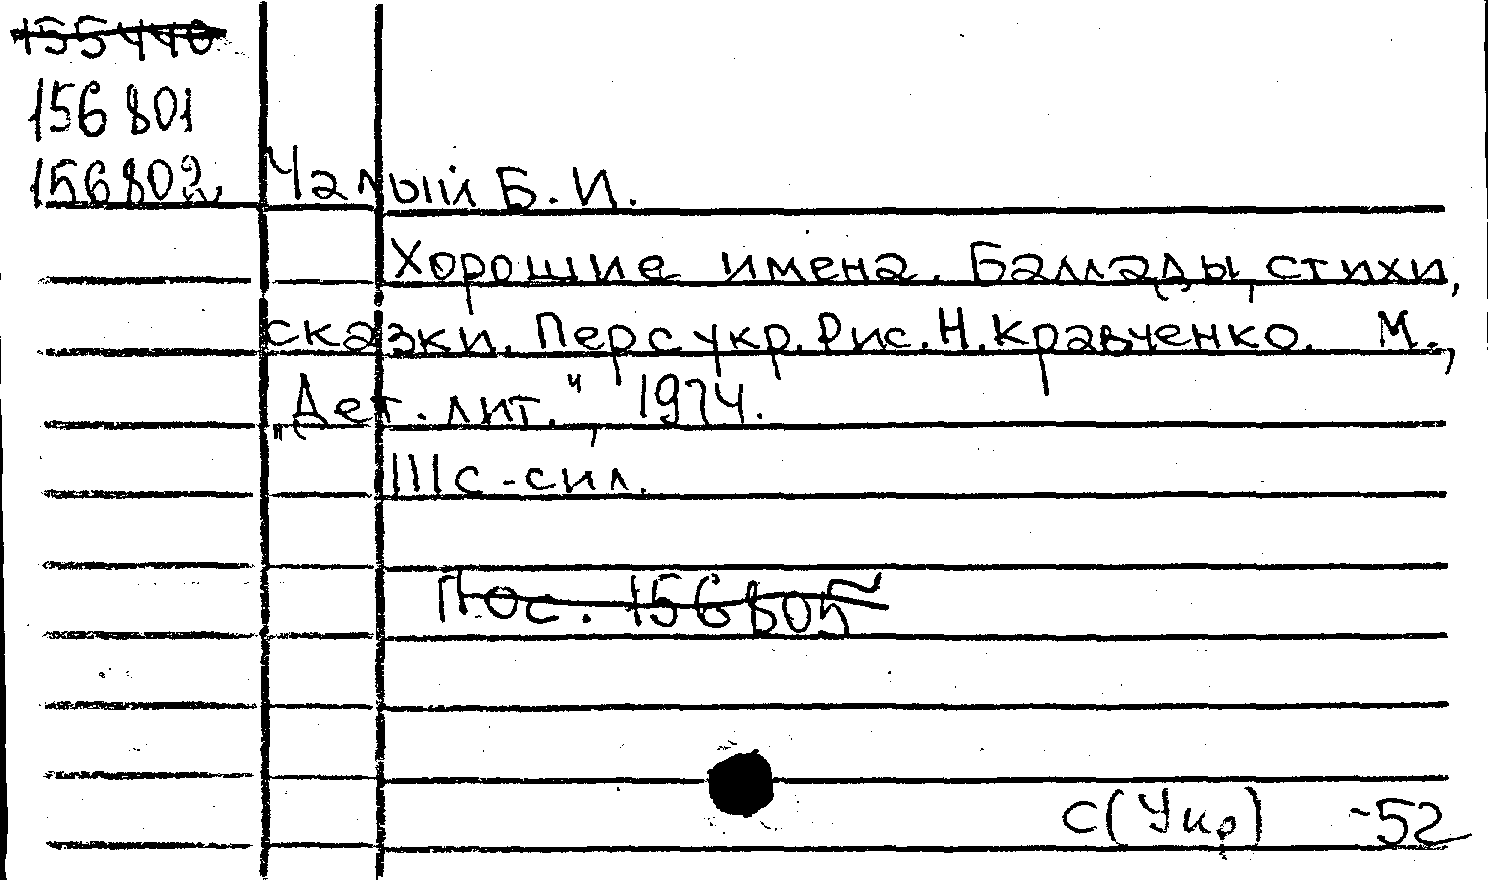 155440
156801
156802 Чалый Б. И.
Хорошие имена. Баллады, стихи,
сказки. Пер с укр. Рис. Н. Кравченко. М.,
„Дет. лит.", 1974.
111с - сил.
Пос. 156805
С(Укр) -52